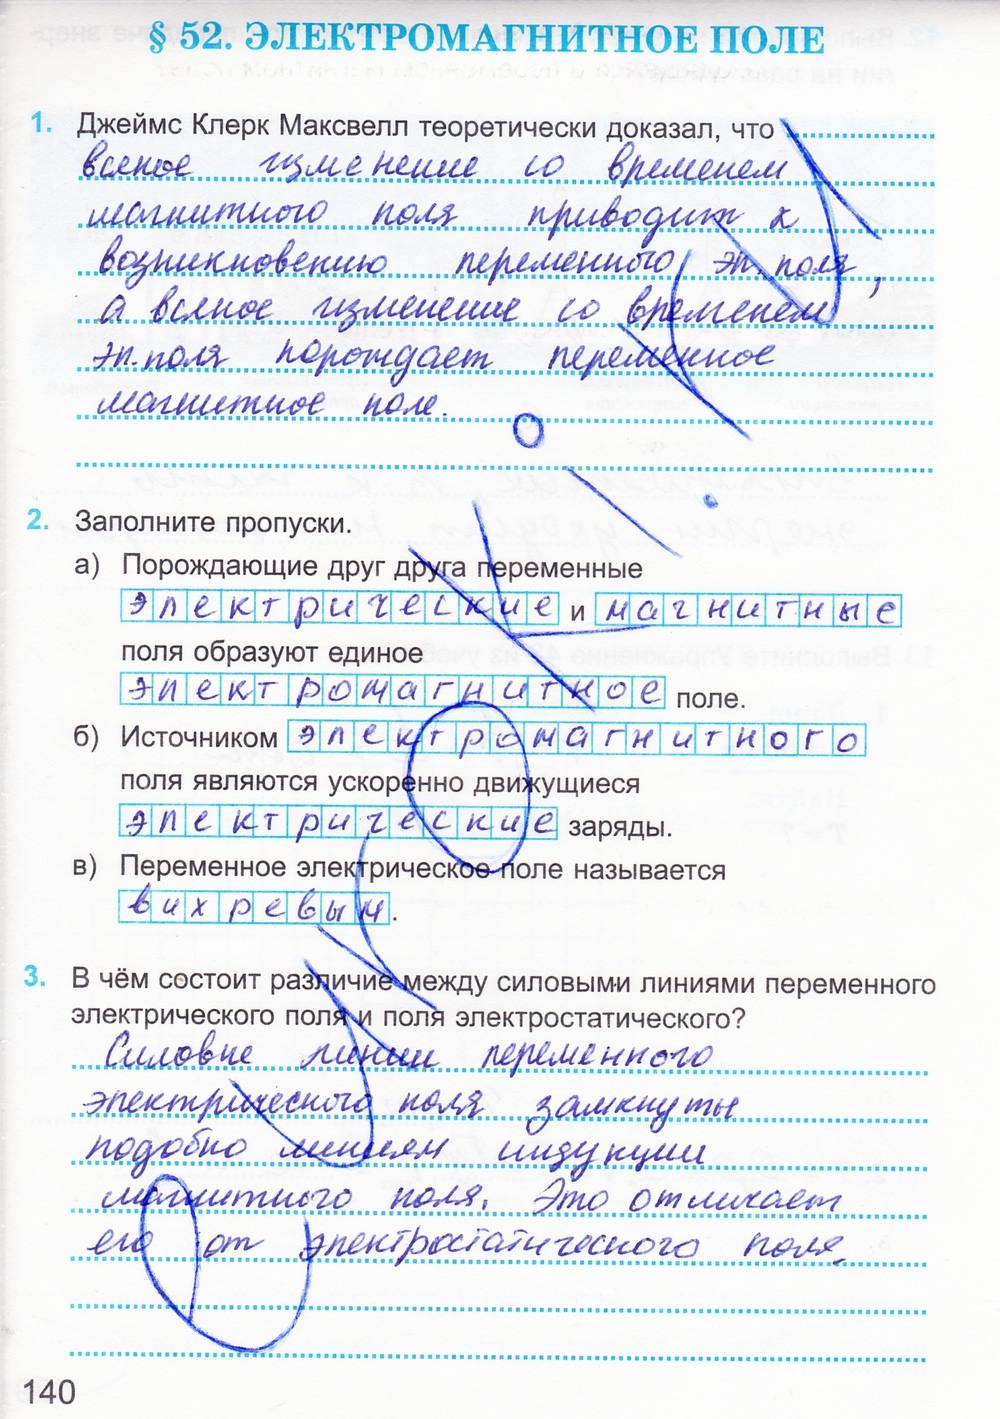 § 52. ЭЛЕКТРОМАГНИТНОЕ ПОЛЕ
1. Джеймс Клерк Максвелл теоретически доказал, что
всякое изменение со временем
магнитного поля приводит к
возникновению переменного эл. поля,
а всякое изменение со временем
эл. поля порождает переменное
магнитное поле.
2. Заполните пропуски.
а) Порождающие друг друга переменные
электрические и магнитные
поля образуют единое
электромагнитное поле.
б) Источником электромагнитного
поля являются ускоренно движущиеся
электрические заряды.
в) Переменное электрическое поле называется
вихревым.
3. В чём состоит различие между силовыми линиями переменного
электрического поля и поля электростатического?
Силовые линии переменного
электрического поля замкнуты
подобно линиям индукции
магнитного поля. Это отличает
его от электростатического поля.
140